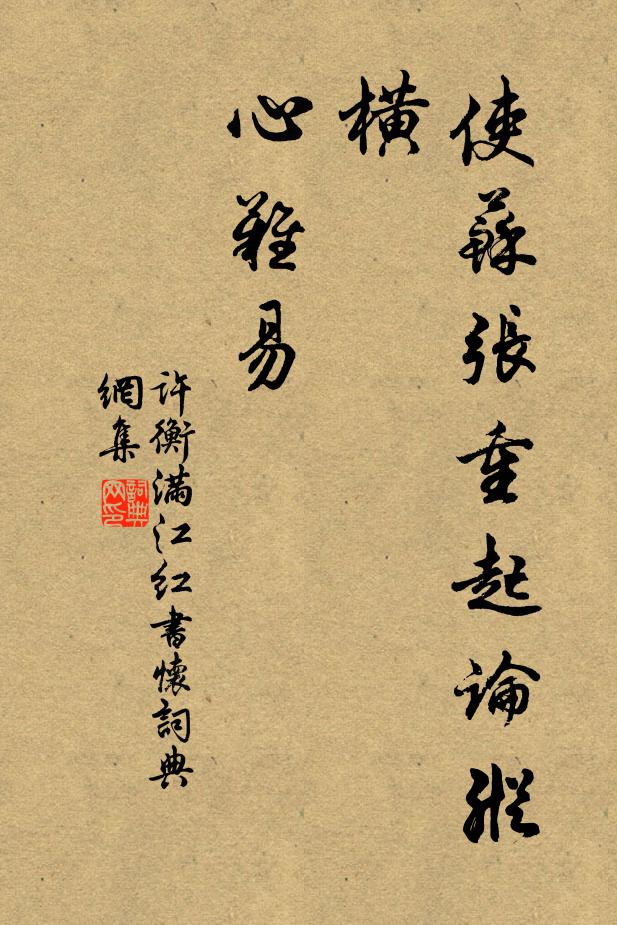 使蘇張重起論縱
橫
心難易
許衡滿江紅書懷詞典
網集
詞典
网印